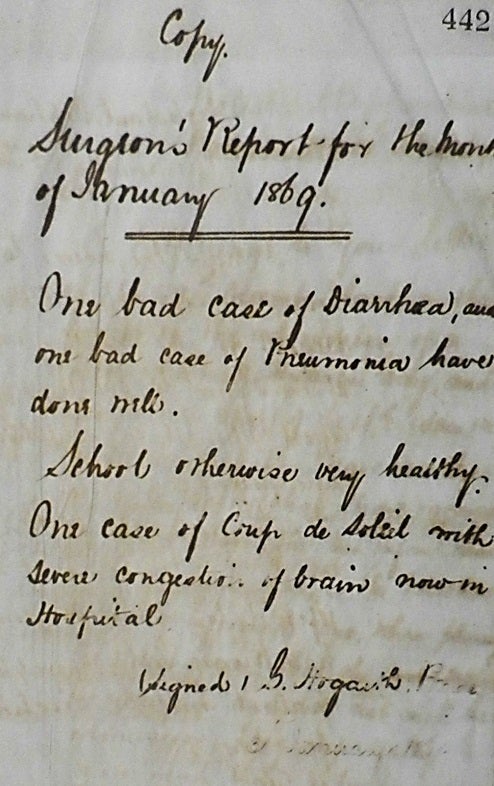 442
Copy.
Surgeon's Report for the Mont
of January 1869.
One bad case of Diarrhœa, and
one bad case of Pneumonia have
done well.
School otherwise very healthy.
One case of Coup de Soleil with
severe congestion of brain now in
Hospital
(signed) G. Hogarth